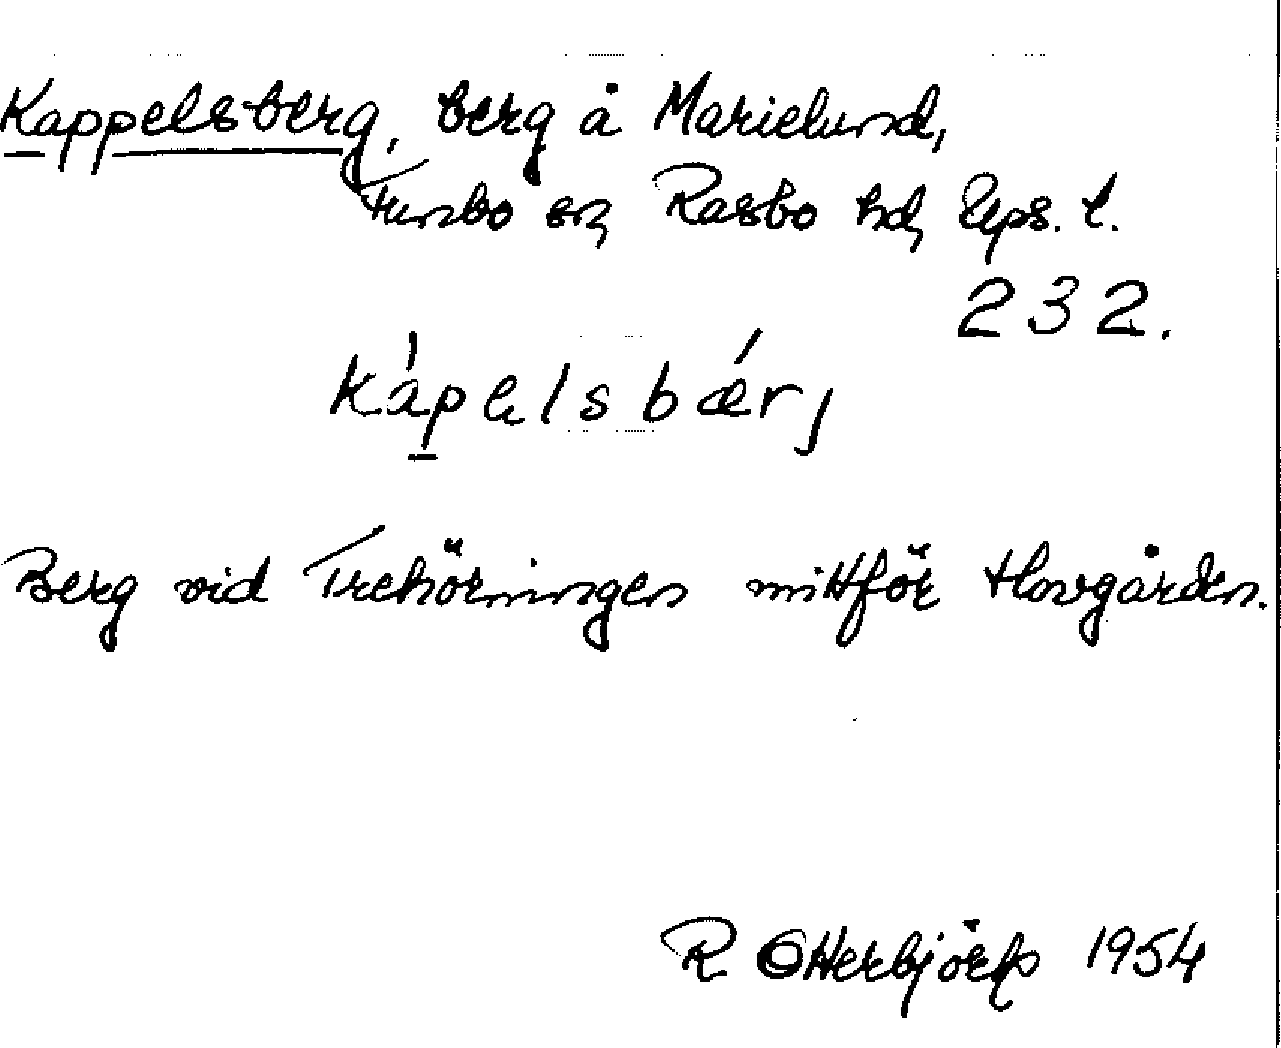 Kappelsberg, berg å Marielund,
Funbo sn, Rasbo hd, Ups. l.
232.
kápelsbǽrj
Berg vid Trehörningen mittför Hovgården.
R Otterbjörk 1954